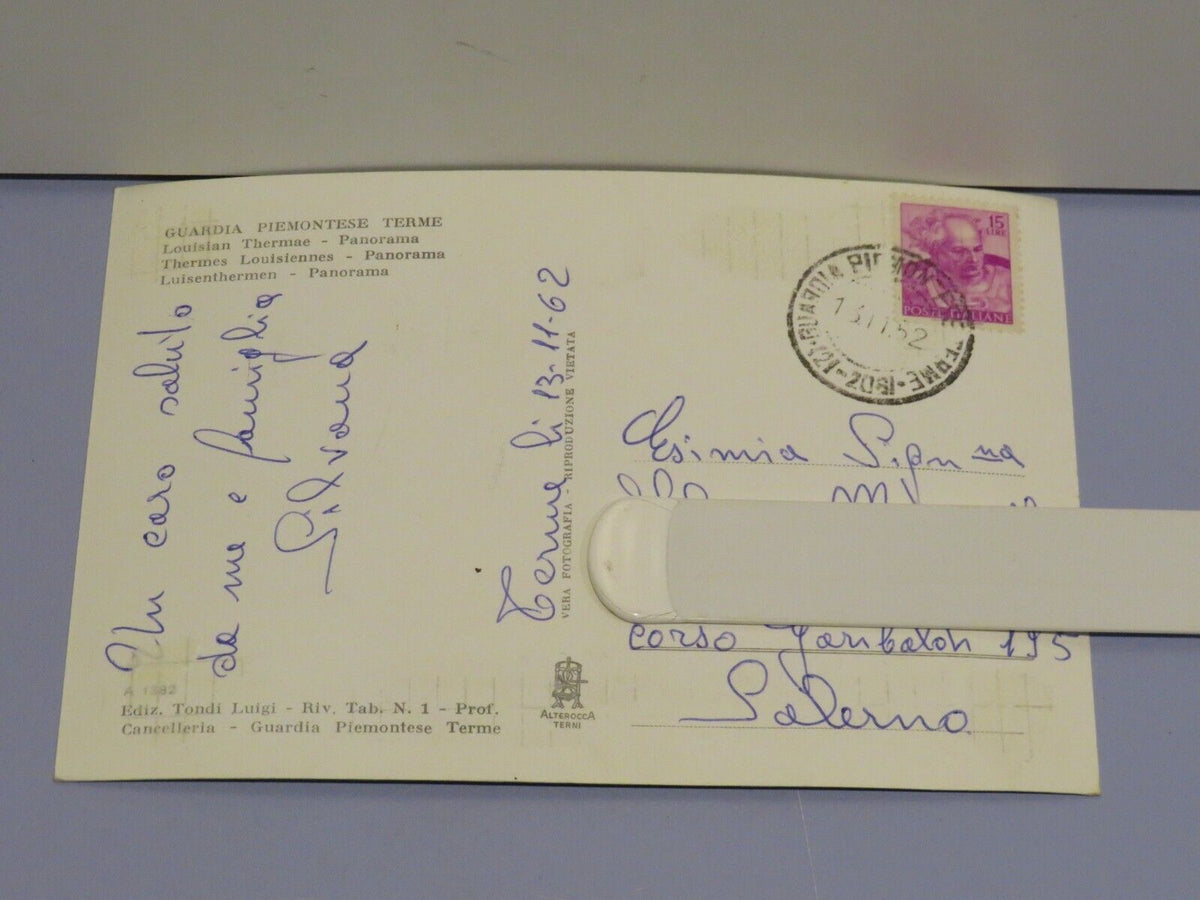 GUARDIA PIEMONTESE TERME
Louisian Thermae - Panorama
Thermes Louisiennes - Panorama
Luisenthermen - Panorama
Un caro saluto
da me e famiglia
Silvana
Terme li 13-11-62
VERA FOTOGRAFIA - RIPRODUZIONE VIETATA
15
LIRE
POSTE ITALIANE
GUARDIA PIEMONTESE TERME
13.11.62
Esimia Sig.na
corso Garibaldi 195
Salerno
A 1382
Ediz. Tondi Luigi - Riv. Tab. N. 1 - Prof.
Cancelleria - Guardia Piemontese Terme
ALTEROCCA
TERNI